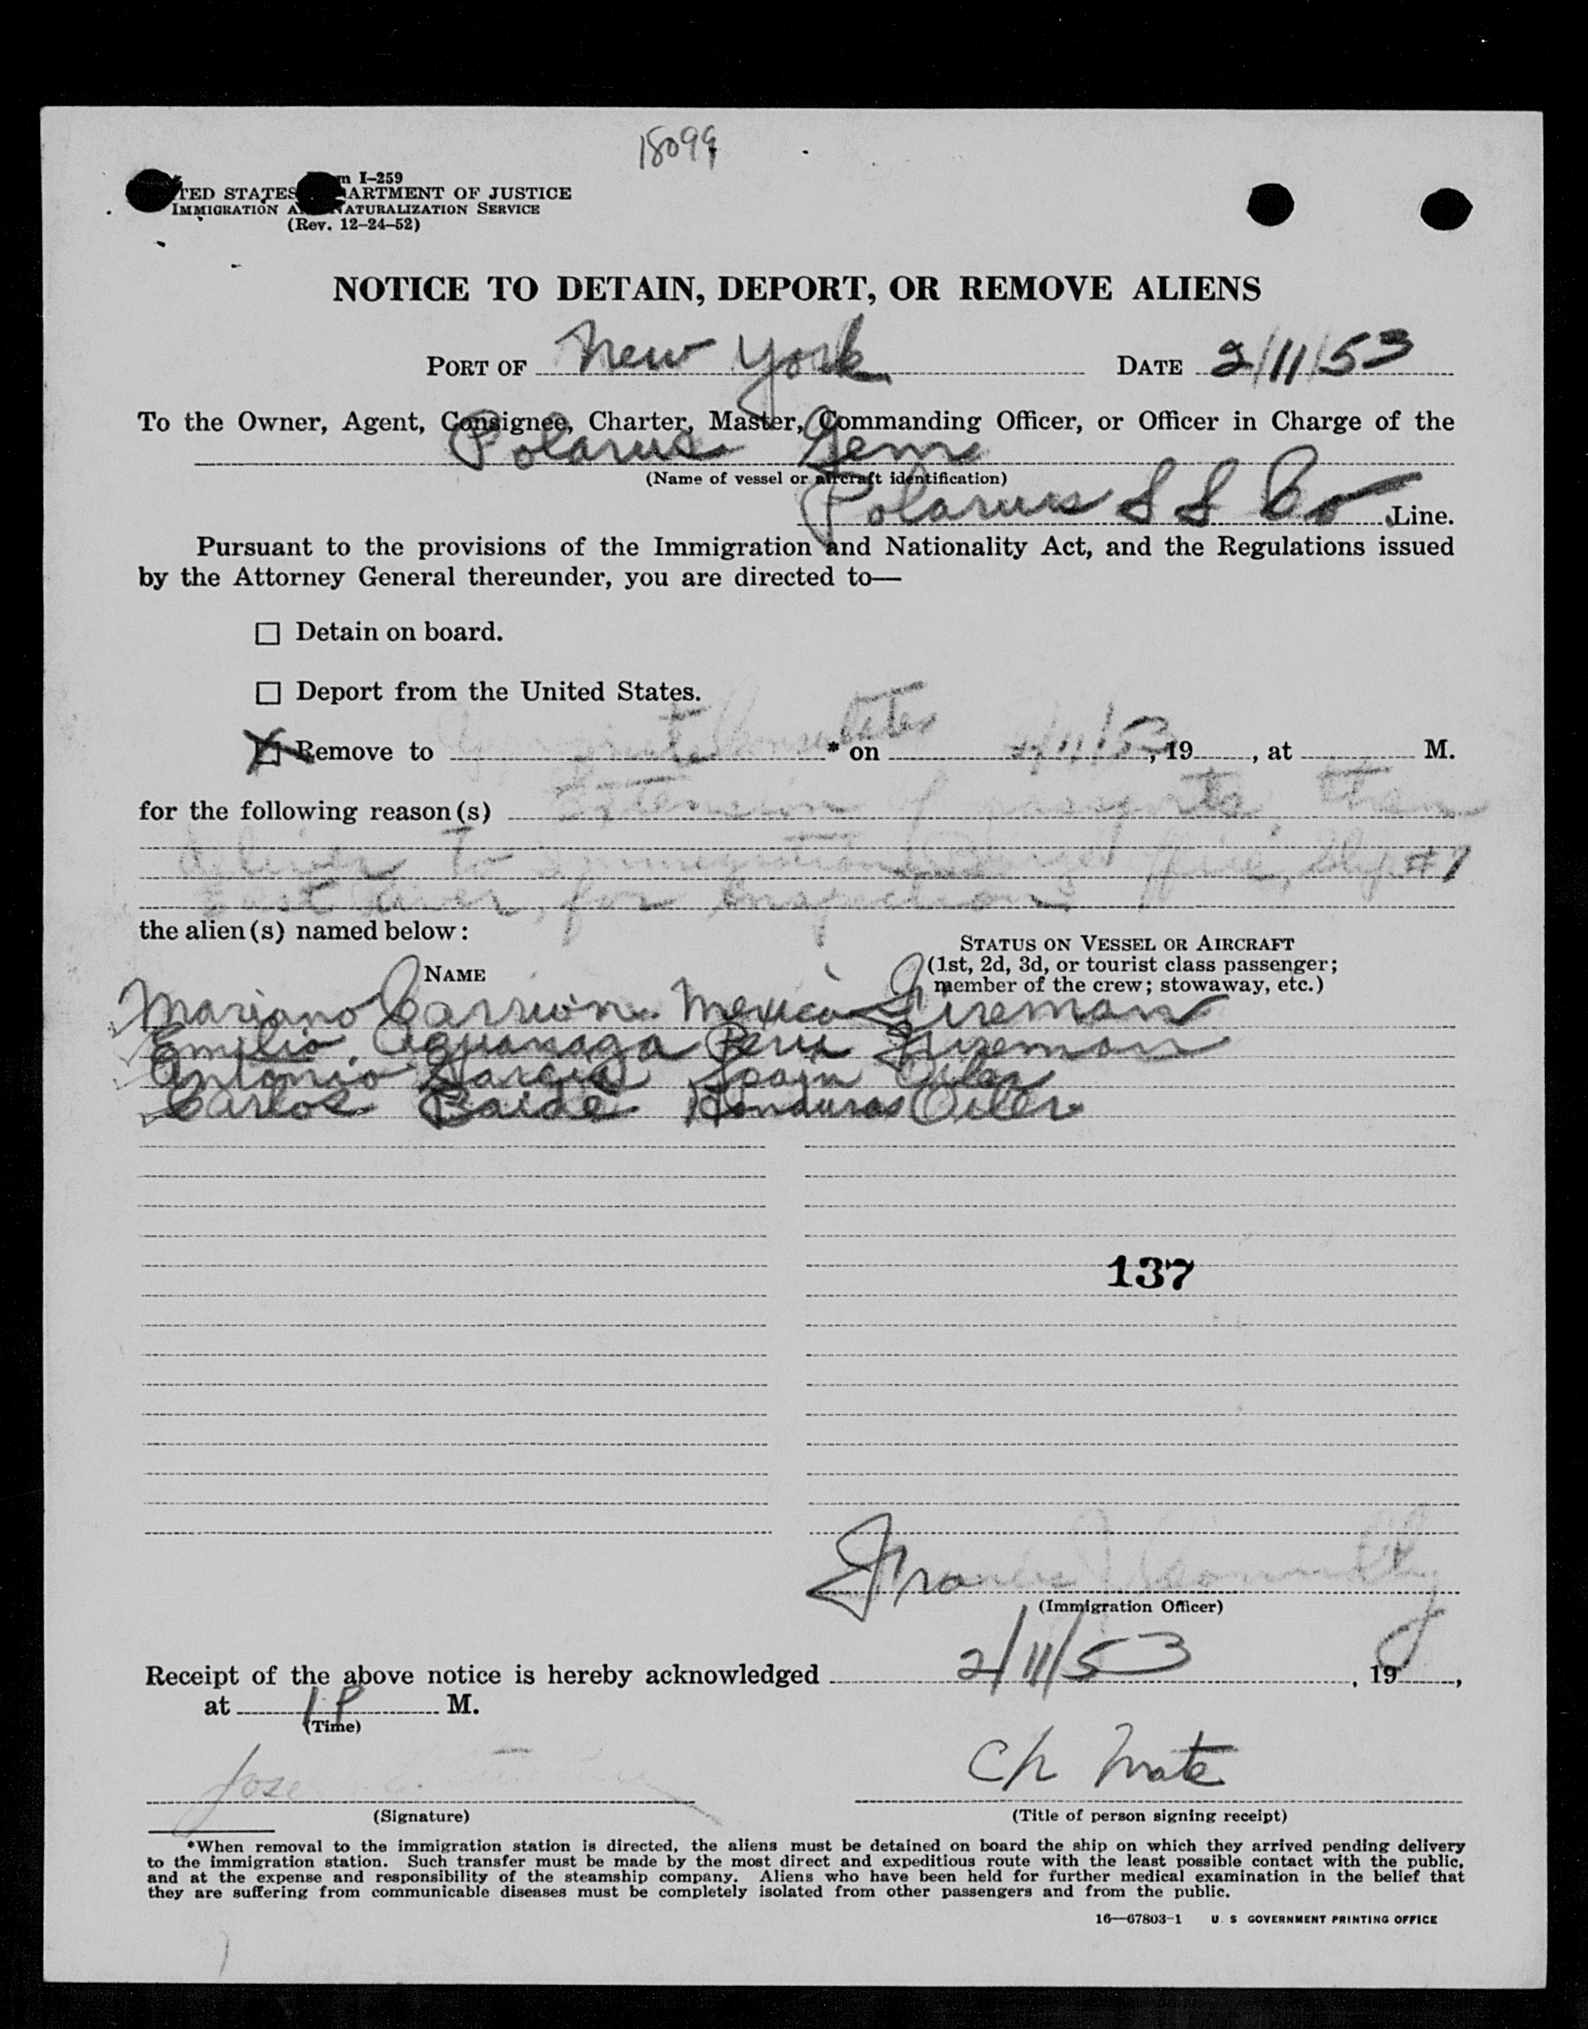 18099
m I-259
TED STATES ARTMENT OF JUSTICE
IMMIGRATION A NATURALIZATION SERVICE
(Rev. 12-24-52)
NOTICE TO DETAIN, DEPORT, OR REMOVE ALIENS
PORT OF New York DATE 2/11/53
To the Owner, Agent, Consignee, Charter, Master, Commanding Officer, or Officer in Charge of the
Polarus Gem
(Name of vessel or aircraft identification)
Polarus S S Co Line.
Pursuant to the provisions of the Immigration and Nationality Act, and the Regulations issued
by the Attorney General thereunder, you are directed to—
☐ Detain on board.
☐ Deport from the United States.
☒ Remove to Consulates * on 2/11/53, 19 , at M.
for the following reason(s) Extension of passports, then
deliver to Immigration Barge Office, Slip #1
East River, for Inspection
the alien(s) named below:
NAME
STATUS ON VESSEL OR AIRCRAFT
(1st, 2d, 3d, or tourist class passenger;
member of the crew; stowaway, etc.)
Mariano Carrion Mexico Fireman
Emilio Aguanaga Peru Fireman
Antonio Garcia Spain Oiler
Carlos Baide Honduras Oiler
137
Francis J Connolly
(Immigration Officer)
Receipt of the above notice is hereby acknowledged 2/11/53, 19 ,
at 1 P M.
(Time)
Jose
Ch Mate
(Signature)
(Title of person signing receipt)
*When removal to the immigration station is directed, the aliens must be detained on board the ship on which they arrived pending delivery
to the immigration station. Such transfer must be made by the most direct and expeditious route with the least possible contact with the public,
and at the expense and responsibility of the steamship company. Aliens who have been held for further medical examination in the belief that
they are suffering from communicable diseases must be completely isolated from other passengers and from the public.
16—67803-1 U S GOVERNMENT PRINTING OFFICE